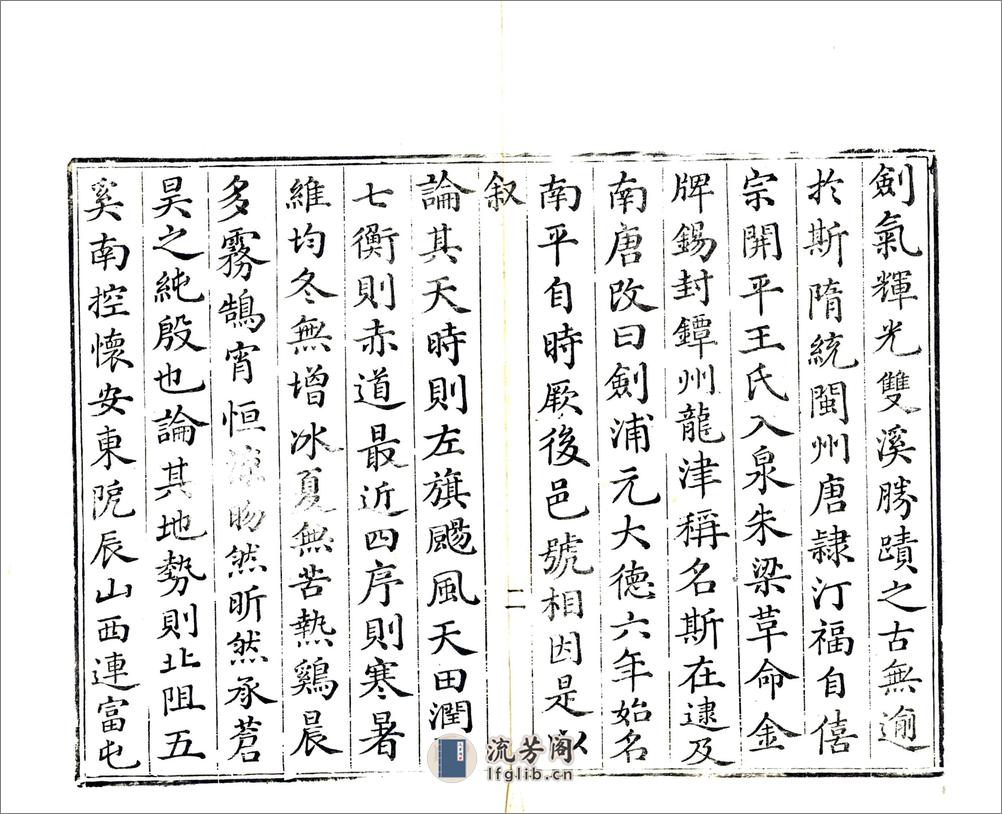 劍氣輝光雙溪勝蹟之古無逾
於斯隋統閩州唐隷汀福自僖
宗開平王氏入泉朱梁草命金
牌錫封鐔州龍津稱名斯在逮及
南唐改曰劍浦元大德六年始名
南平自時厥後邑號相因是以
叙
二
論其天時則左旗颺風天田潤
七衡則赤道最近四序則寒暑
維均冬無增冰夏無苦熱鷄晨
多霧鵠宵恒 暘然昕然承蒼
昊之純殷也論其地勢則北阻五
奚南控懷安東阸辰山西連富屯
流芳阁
lfglib.cn